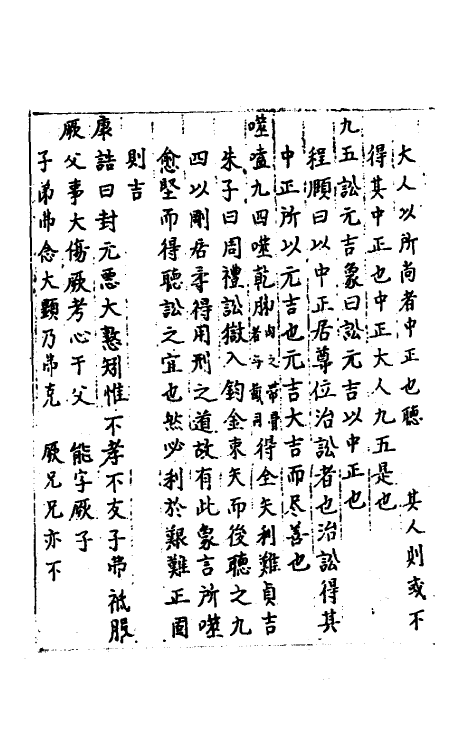 大人以所尚者中正也聽　　其人則或不
得其中正也中正大人九五是也
九五訟元吉象曰訟元吉以中正也
程頤曰以中正居尊位治訟者也治訟得其
中正所以元吉也元吉大吉而尽善也
噬嗑九四噬乾胏肉之帶骨者与胾同得金矢利難貞吉
朱子曰周禮訟獄入鈞金束矢而後聽之九
四以剛居柔得用刑之道故有此象言所噬
愈堅而得聽訟之宜也然必利於艱難正固
則吉
康誥曰封元惡大憝矧惟不孝不友子弗祗服
厥父事大傷厥考心于父　能字厥子
子弟弗念天顯乃弗克　厥兄兄亦不